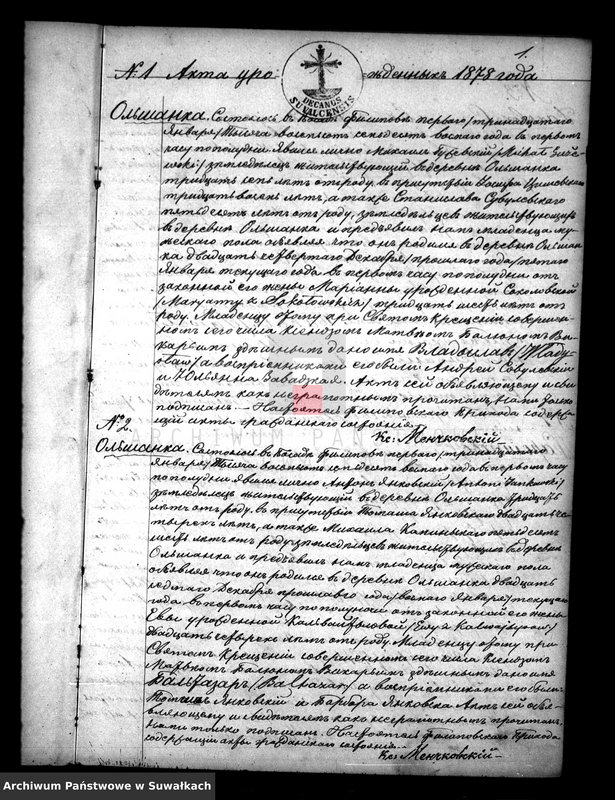 1.
№ 1 Акта уро жденныхъ 1878 года
DECANUS SUVALCENSIS
Ольшанка. Состоялось въ Посадѣ Филиповѣ перваго/тринадцатаго
Января тысяча восемьсотъ семьдесятъ восьмаго года въ первомъ
часу пополудни. Явился лично Михаилъ /Michał
земледѣлецъ жительствующій въ деревнѣ Ольшанка
тридцать лѣтъ отроду, въ присутствіи
тридцать восемь лѣтъ, а также Станислава
пятьдесятъ лѣтъ отъ роду, земледѣльцевъ жительствующихъ
въ деревнѣ Ольшанка и предъявилъ намъ младенца му-
жескаго пола объявляя что онъ родился въ деревнѣ Ольшан-
ка двадцать четвертаго Декабря/прошлаго года/пятаго
Января текущаго года въ первомъ часу пополудни отъ
законной его жены Маріанны урожденной Соколовской
/Maryanny z Sokołowskich/ тридцать шесть лѣтъ отъ
роду. Младенцу этому при Святомъ Крещеніи совершен-
номъ сего числа Ксендзомъ Матвѣемъ Балюномъ Ви-
карьемъ здѣшнимъ дано имя Владыславъ
а воспріемниками его были Андрей
и Юльянна Завадзкая. Актъ сей объявляющему и сви-
дѣтелямъ какъ неграмотнымъ прочитанъ, Нами только
подписанъ. Настоятель Филиповскаго Прихода содержа-
щій акты гражданскаго состоянія.
Кс: Менчковскій
ARCHIWUM PAŃSTWOWE
№ 2.
Ольшанка. Состоялось въ Посадѣ Филиповѣ перваго/тринадцатаго
Января тысяча восемьсотъ семьдесятъ восьмаго года въ первомъ часу
пополудни. Явился лично Антонъ Янковскій /Antoni Jankowski/
земледѣлецъ жительствующій въ деревнѣ Ольшанка
лѣтъ отъ роду, въ присутствіи Янковскаго двадцать че-
тырехъ лѣтъ, а также Михаила пятьдесятъ
шесть лѣтъ отъ роду земледѣльцевъ жительствующихъ въ деревнѣ
Ольшанка и предъявилъ намъ младенца мужескаго пола
объявляя что онъ родился въ деревнѣ Ольшанка двадцать
седьмаго Декабря прошлаго года/восьмаго Января текущаго
года въ первомъ часу пополуночи отъ законной его жены
Евы урожденной /Ewy z
двадцать четыре лѣтъ отъ роду. Младенцу этому при
Святомъ Крещеніи совершенномъ сего числа Ксендзомъ
Матвѣемъ Балюномъ Викарьемъ здѣшнимъ дано имя
Бальтазаръ, а воспріемниками его были
Янковскій и Барбара Янковска. Актъ сей объя-
вляющему и свидѣтелямъ какъ неграмотнымъ прочитанъ,
нами только подписанъ. Настоятель Филиповскаго Прихода
содержащій акты гражданскаго состоянія.
Кс: Менчковскій
Archiwum Państwowe w Suwałkach